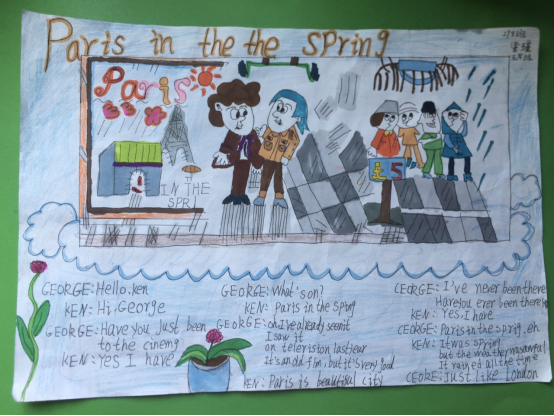 Paris in the the spring
Paris
IN THE
SPRI
£5
GEORGE: Hello. Ken
KEN: Hi. George
GEORGE: Have you Just been
to the cinema
KEN: Yes I have
GEORGE: What's on?
KEN: Paris in the spring
GEORGE: oh I've already seen it
I saw it
on television last year
It's an old film, but it's very good
KEN: Paris is beautiful city
GEORGE: I've never been there
Have you ever been there
KEN: Yes, I have
GEORGE: Paris in the spring, eh
KEN: It was spring
but the weather was awful
It rained all the time
GEORGE: Just like London